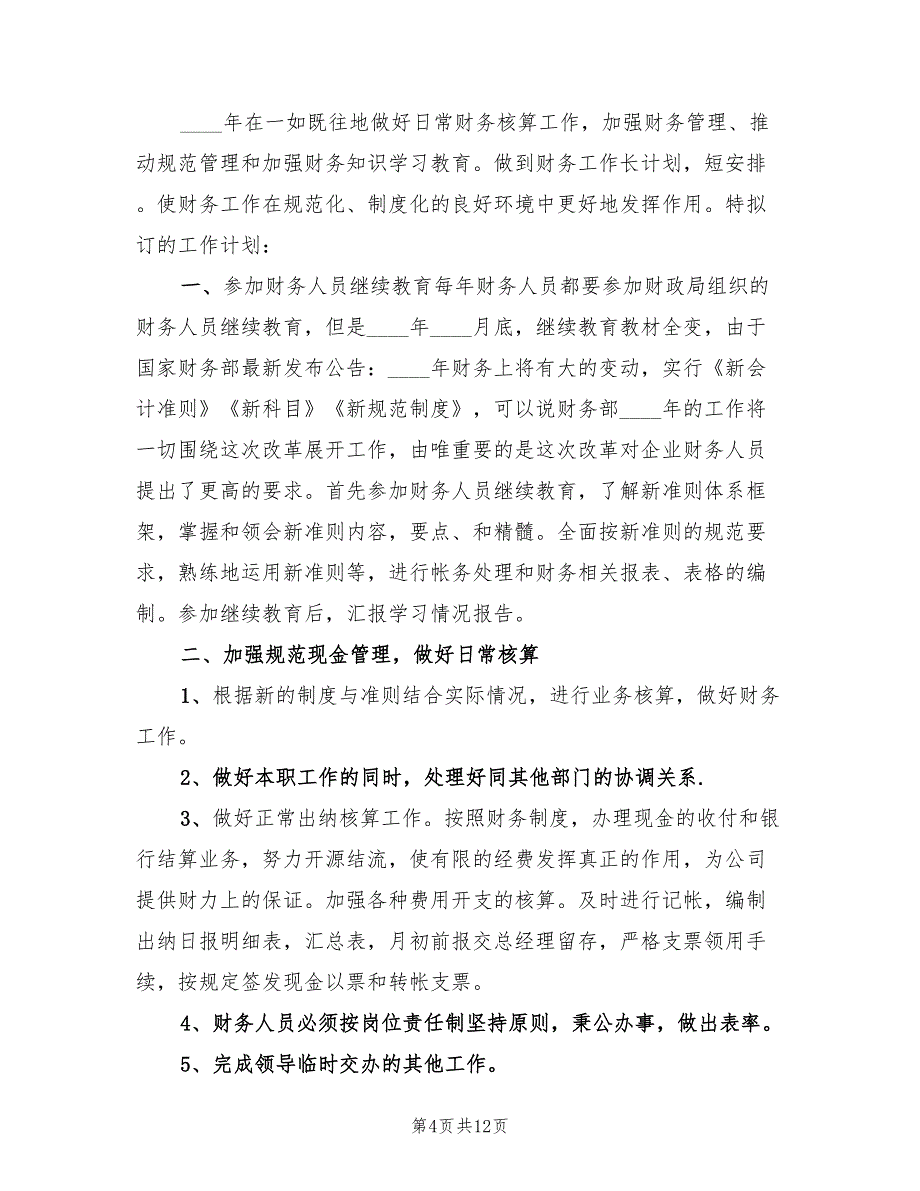 ____年在一如既往地做好日常财务核算工作，加强财务管理、推
动规范管理和加强财务知识学习教育。做到财务工作长计划，短安排
。使财务工作在规范化、制度化的良好环境中更好地发挥作用。特拟
订的工作计划：
一、参加财务人员继续教育每年财务人员都要参加财政局组织的
财务人员继续教育，但是____年____月底，继续教育教材全变，由于
国家财务部最新发布公告：____年财务上将有大的变动，实行《新会
计准则》《新科目》《新规范制度》，可以说财务部____年的工作将
一切围绕这次改革展开工作，由唯重要的是这次改革对企业财务人员
提出了更高的要求。首先参加财务人员继续教育，了解新准则体系框
架，掌握和领会新准则内容，要点、和精髓。全面按新准则的规范要
求，熟练地运用新准则等，进行帐务处理和财务相关报表、表格的编
制。参加继续教育后，汇报学习情况报告。
二、加强规范现金管理，做好日常核算
1、根据新的制度与准则结合实际情况，进行业务核算，做好财务
工作。
2、做好本职工作的同时，处理好同其他部门的协调关系.
3、做好正常出纳核算工作。按照财务制度，办理现金的收付和银
行结算业务，努力开源结流，使有限的经费发挥真正的作用，为公司
提供财力上的保证。加强各种费用开支的核算。及时进行记帐，编制
出纳日报明细表，汇总表，月初前报交总经理留存，严格支票领用手
续，按规定签发现金以票和转帐支票。
4、财务人员必须按岗位责任制坚持原则，秉公办事，做出表率。
5、完成领导临时交办的其他工作。
第4页共12页